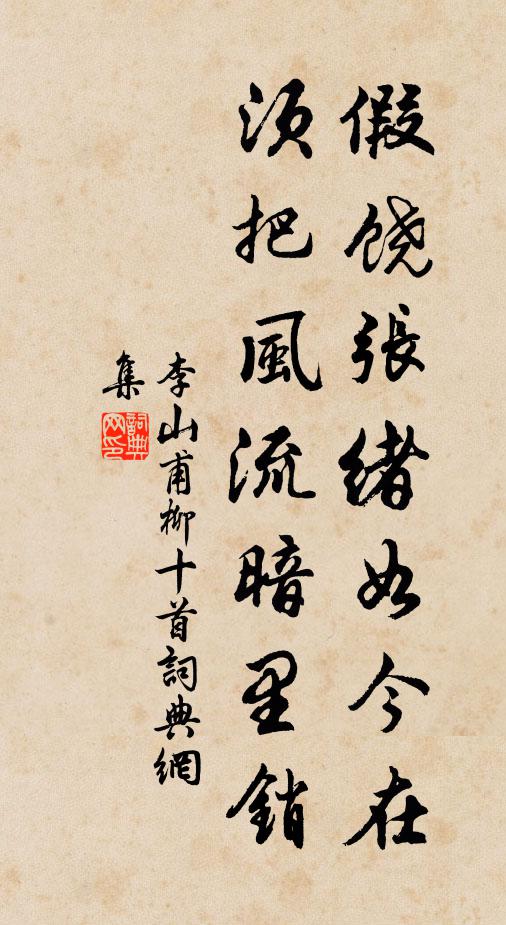 假饒張緒如今在
須把風流暗里銷
李山甫柳十首詞典網
集
詞典
网印